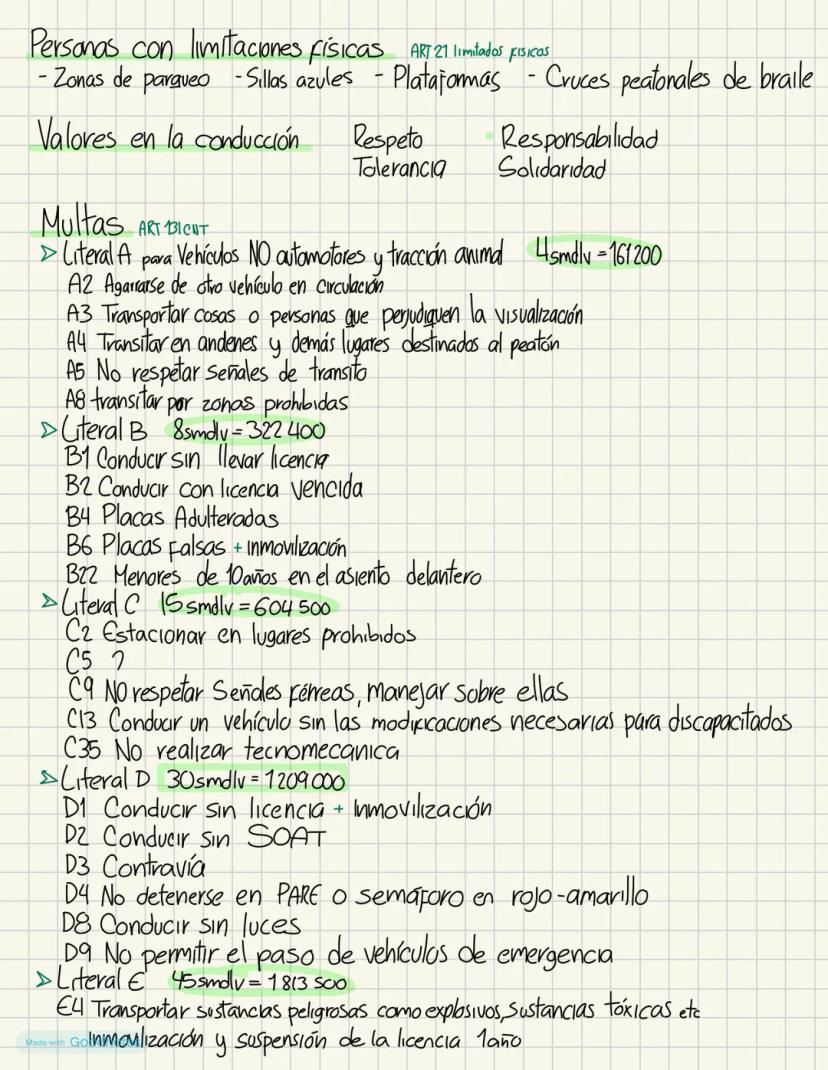 Personas con limitaciones físicas ART 21 limitados fisicos
- Zonas de parqueo - Sillas azules - Plataformas - Cruces peatonales de braile
Valores en la conducción Respeto Responsabilidad
Tolerancia Solidaridad
Multas ART 131 CNT
> Literal A para Vehículos NO automotores y tracción animal 4smdlv = 161 200
A2 Agarrarse de otro vehículo en circulación
A3 Transportar cosas o personas que perjudiquen la visualización
A4 Transitar en andenes y demás lugares destinados al peatón
A5 No respetar señales de transito
A8 transitar por zonas prohibidas
> Literal B 8smdlv = 322 400
B1 Conducir sin llevar licencia
B2 Conducir con licencia vencida
B4 Placas Adulteradas
B6 Placas Falsas + inmovilización
B22 Menores de 10 años en el asiento delantero
> Literal C 15 smdlv = 604 500
C2 Estacionar en lugares prohibidos
C5 ?
C9 NO respetar Señales férreas, manejar sobre ellas
C13 Conducir un vehículo sin las modificaciones necesarias para discapacitados
C35 No realizar tecnomecanica
> Literal D 30smdlv = 1209 000
D1 Conducir sin licencia + inmovilización
D2 Conducir sin SOAT
D3 Contravía
D4 No detenerse en PARE o semáforo en rojo-amarillo
D8 Conducir sin luces
D9 No permitir el paso de vehículos de emergencia
> Literal E 45smdlv = 1 813 500
E4 Transportar sustancias peligrosas como explosivos, sustancias tóxicas etc
Inmovilización y suspensión de la licencia 1año
Made with Goodnotes